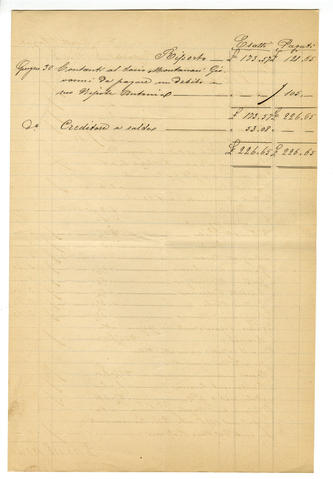 Esatti Pagati
Riporto — £ 173.57 £ 121.65
Giugno 30 Contanti al Socio Montanari Gio-
vanni da pagare un debito a
suo Nipote Antonio — " — " — " 105. —
£ 173.57 £ 226.65
Creditore a saldo — " 53.08. — " —
£ 226.65 £ 226.65